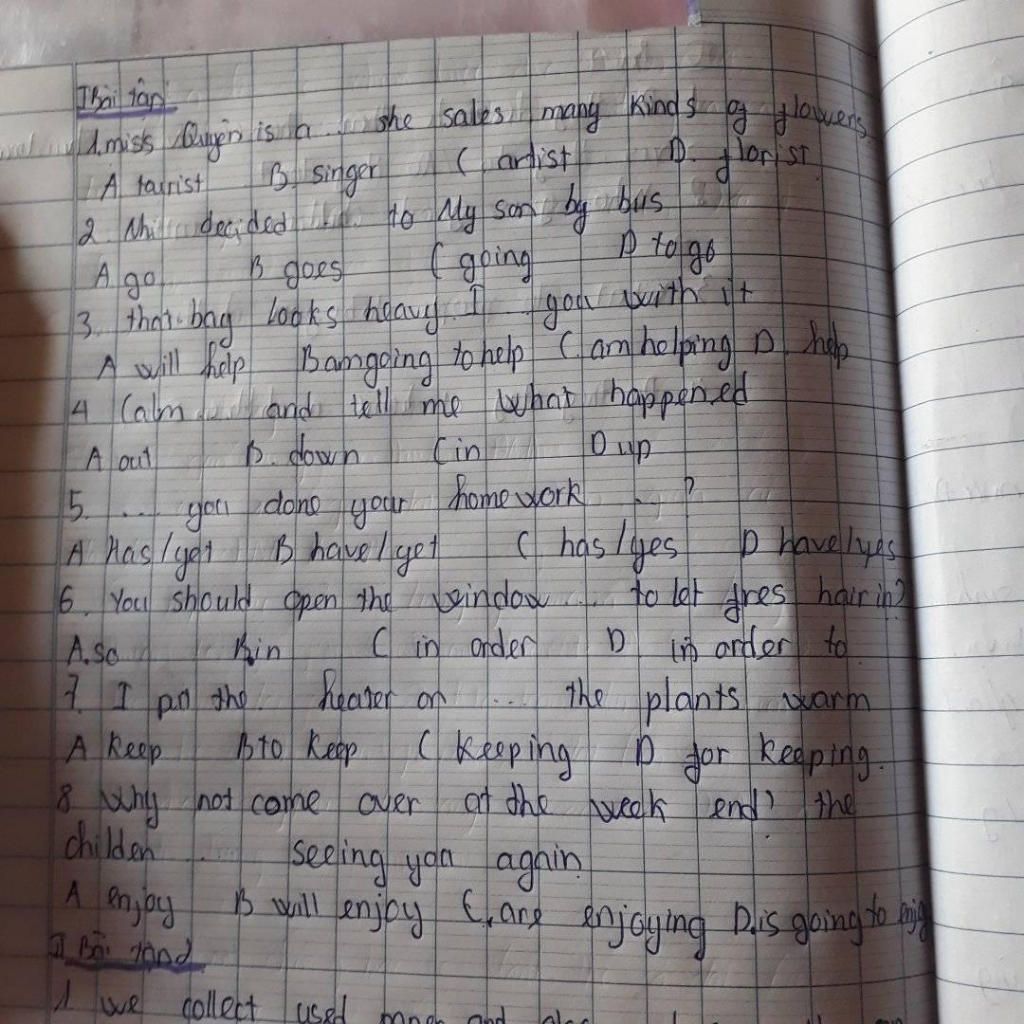 I Bài tập
1. miss Quyên is a ... she sales many kinds of flowers
A tourist B. singer C artist D. florist
2. Nhi decided .... to My son by bus
A. go B goes C going D to go
3. that bag looks heavy. I ... you with it
A will help B am going to help C. am helping D help
4 Calm .... and tell me what happened
A out B. down C in D up
5. .... you done your homework ...?
A has/yet B have/yet C has/yes D have/yes
6. You should open the window ... to let fres hair in?
A. so B. in C in order D in order to
7. I put the heater on ... the plants warm
A keep B to keep C keeping D for keeping.
8 Why not come over at the week end? the
childen ... seeing you again.
A enjoy B will enjoy C. are enjoying D. is going to enjoy
II Bài tập 2
1 we collect used paper and also